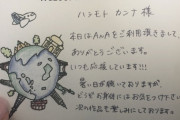 ハシモト カンナ 様
本日はANAをご利用頂きまして、
ありがとうございます。
いつも応援しています!!!
暑い日が続いておりますが、
どうぞお身体にはお気をつけ下さい
次の作品も楽しみにしております。